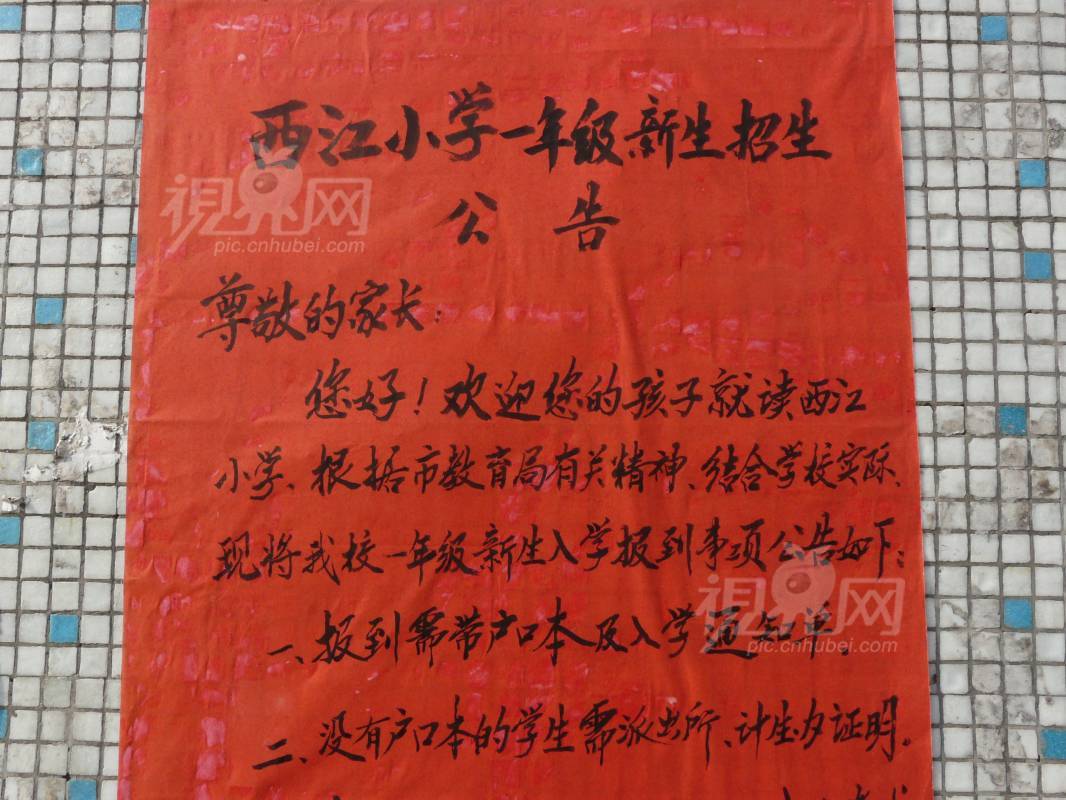 西江小学一年级新生招生
公告
視界网
pic.cnhubei.com
尊敬的家长:
您好!欢迎您的孩子就读西江
小学、根据市教育局有关精神、结合学校实际、
现将我校一年级新生入学报到事项公告如下:
視界网
pic.cnhubei.com
一、报到需带户口本及入学通知单。
二、没有户口本的学生需派出所、计生办证明。